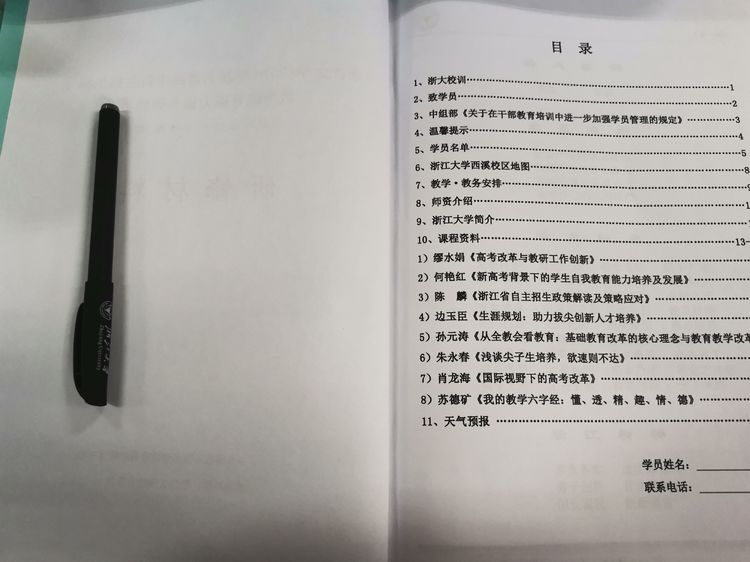 浙江大学
Zhejiang University
目 录
1、浙大校训……1
2、致学员……2
3、中组部《关于在干部教育培训中进一步加强学员管理的规定》……3
4、温馨提示……4
5、学员名单……5
6、浙江大学西溪校区地图……8
7、教学·教务安排……9
8、师资介绍……1
9、浙江大学简介……
10、课程资料……13-
1）缪水娟《高考改革与教研工作创新》……
2）何艳红《新高考背景下的学生自我教育能力培养及发展》……
3）陈　麟《浙江省自主招生政策解读及策略应对》……
4）边玉臣《生涯规划：助力拔尖创新人才培养》……
5）孙元涛《从全教会看教育：基础教育改革的核心理念与教育教学改革
6）朱永春《浅谈尖子生培养，欲速则不达》……
7）肖龙海《国际视野下的高考改革》……
8）苏德矿《我的教学六字经：懂、透、精、趣、情、德》……
11、天气预报……
学员姓名：
联系电话：